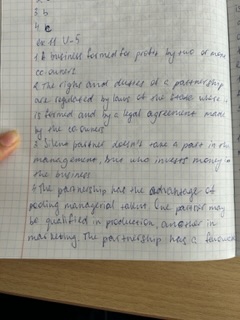 3. b
4. c
ex 11 U-5
1. A business formed for profit by two or more
co-owners
2. The rights and duties of a partnership
are regulated by laws of the state where it
is formed and by a legal agreement made
by the co-owners
3. partner doesn't take a part in the
management, but who invests money in
the business
4. The partnership has the advantage of
pooling managerial talent. One partner may
be qualified in production, another in
marketing. The partnership has a